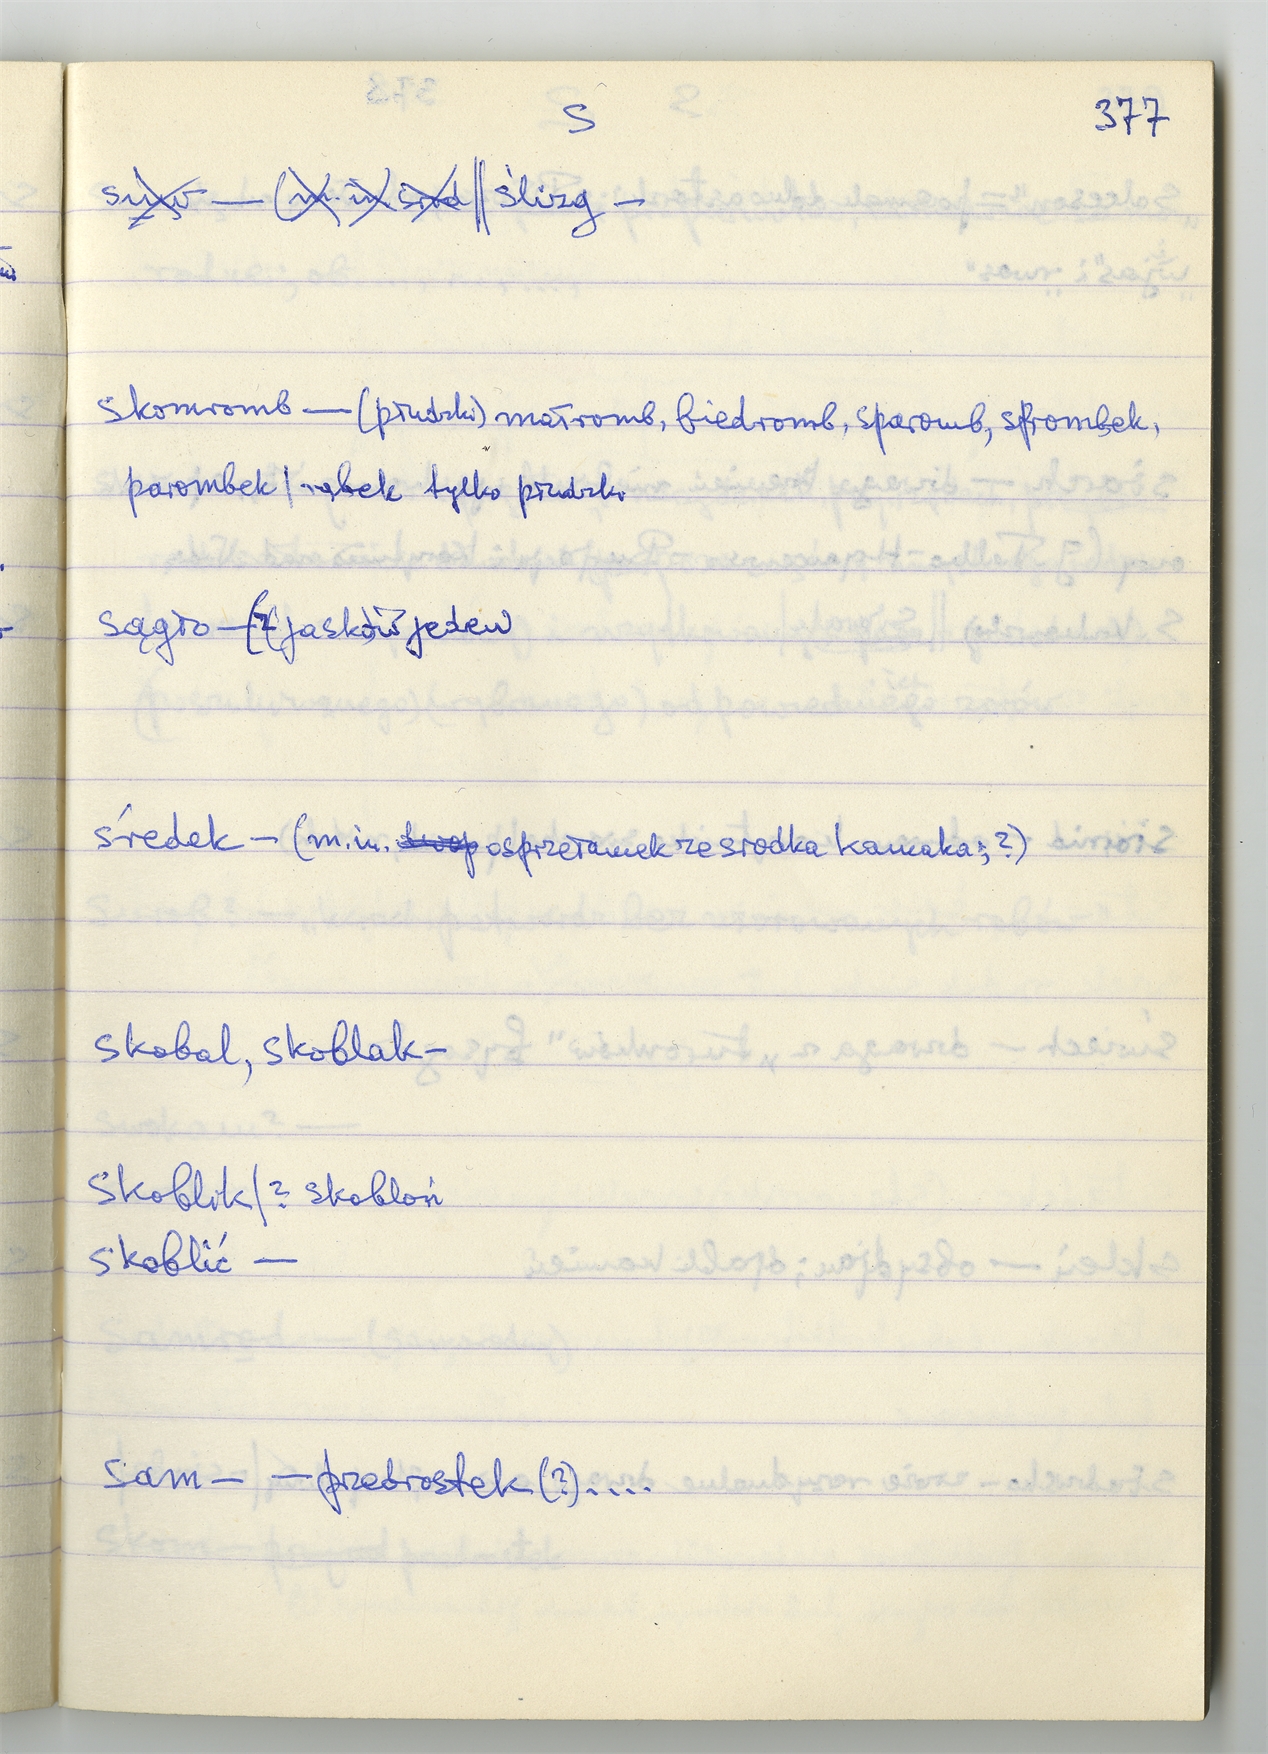 S 377
— ślizg –
skomromb — (płudzki) matromb, biedromb, sparomb, sprombek,
parombek | rąbek tylko płudzki
sągło — jasków jeden
średek – (m.in. osprzełamek ze srodka kamaka; ?)
skobal, skoblak –
skoblik/? skobloń
skoblić —
sam – – przedrostek (?)....